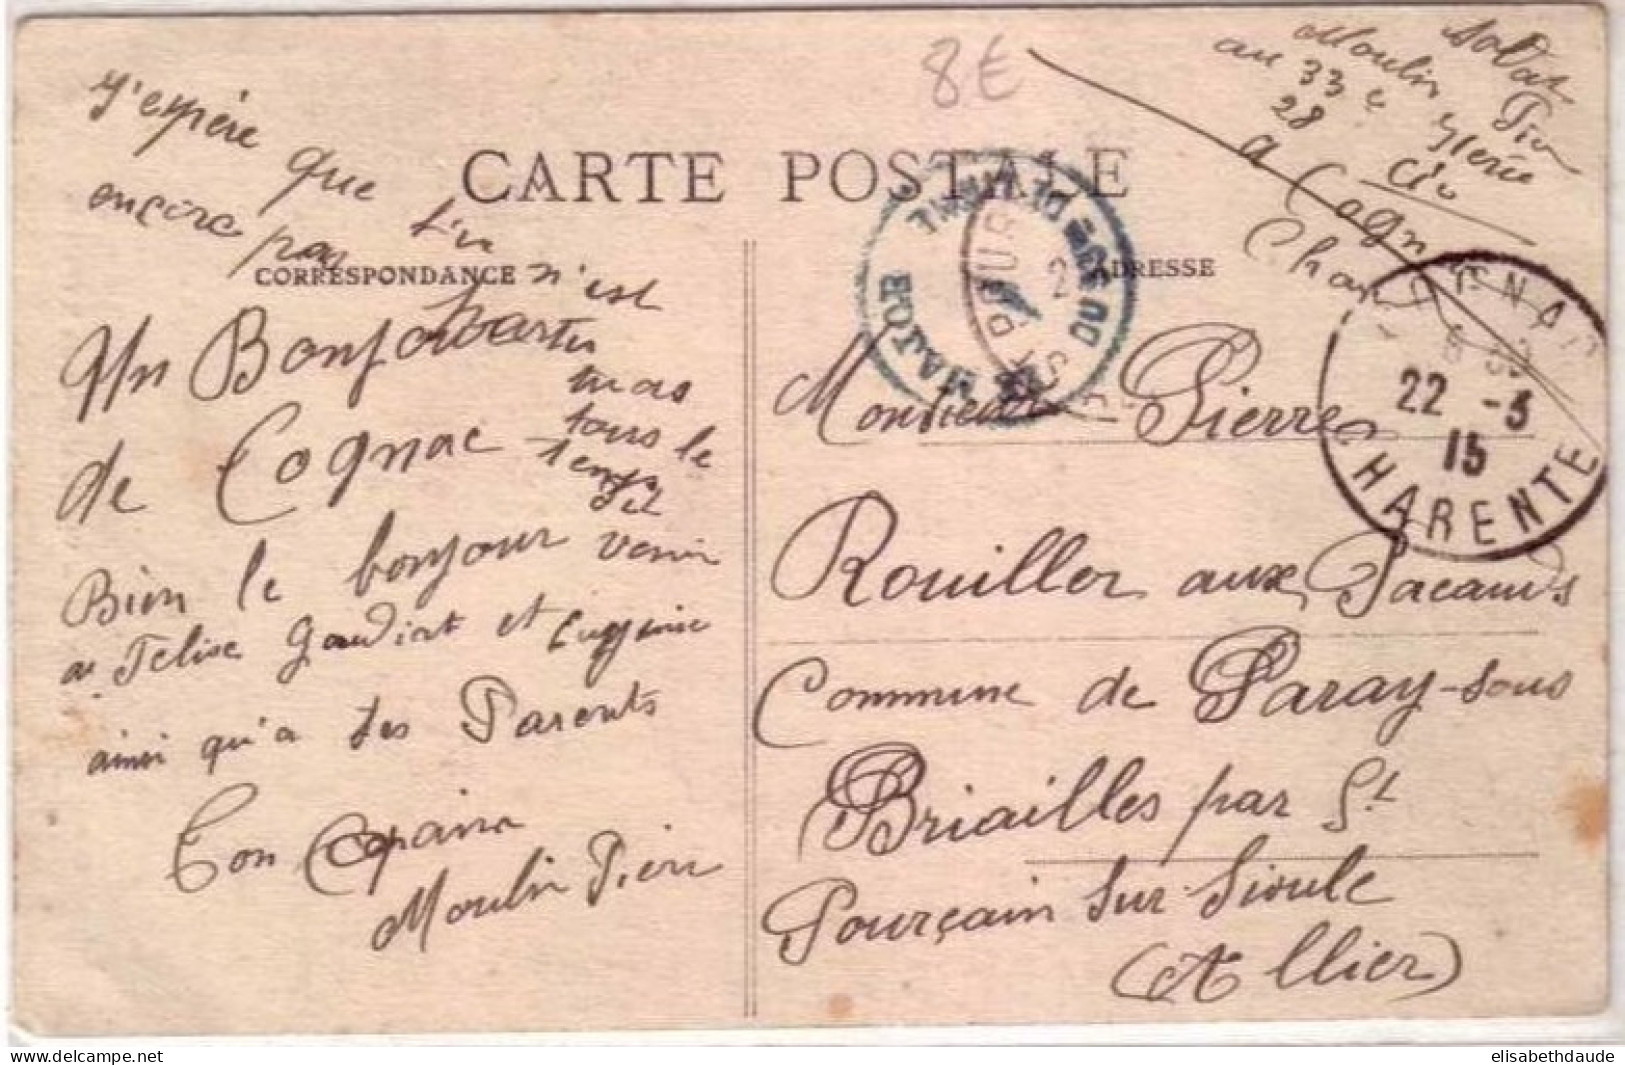 8€
Soldat
Moulin
au 33e
28 Cie
a Cognac
CARTE POSTALE
CORRESPONDANCE
ADRESSE
J'espère que tu n'est
encore pas
mais
tous le
temps
venir
Un Bonjour
de Cognac
Bien le bonjour
a Felise Gaudiat et Euggenie
ainsi qu'a tes Parents
Ton Copain
Moulin Pierre
Monsieur Pierre
Rouiller aux Pacauds
Commune de Paray-sous
Briailles par St
Pourçain sur Sioule
(Allier)
MAJOR
DU
22 -3
15
CHARENTE
elisabethdaude
delcampe.net